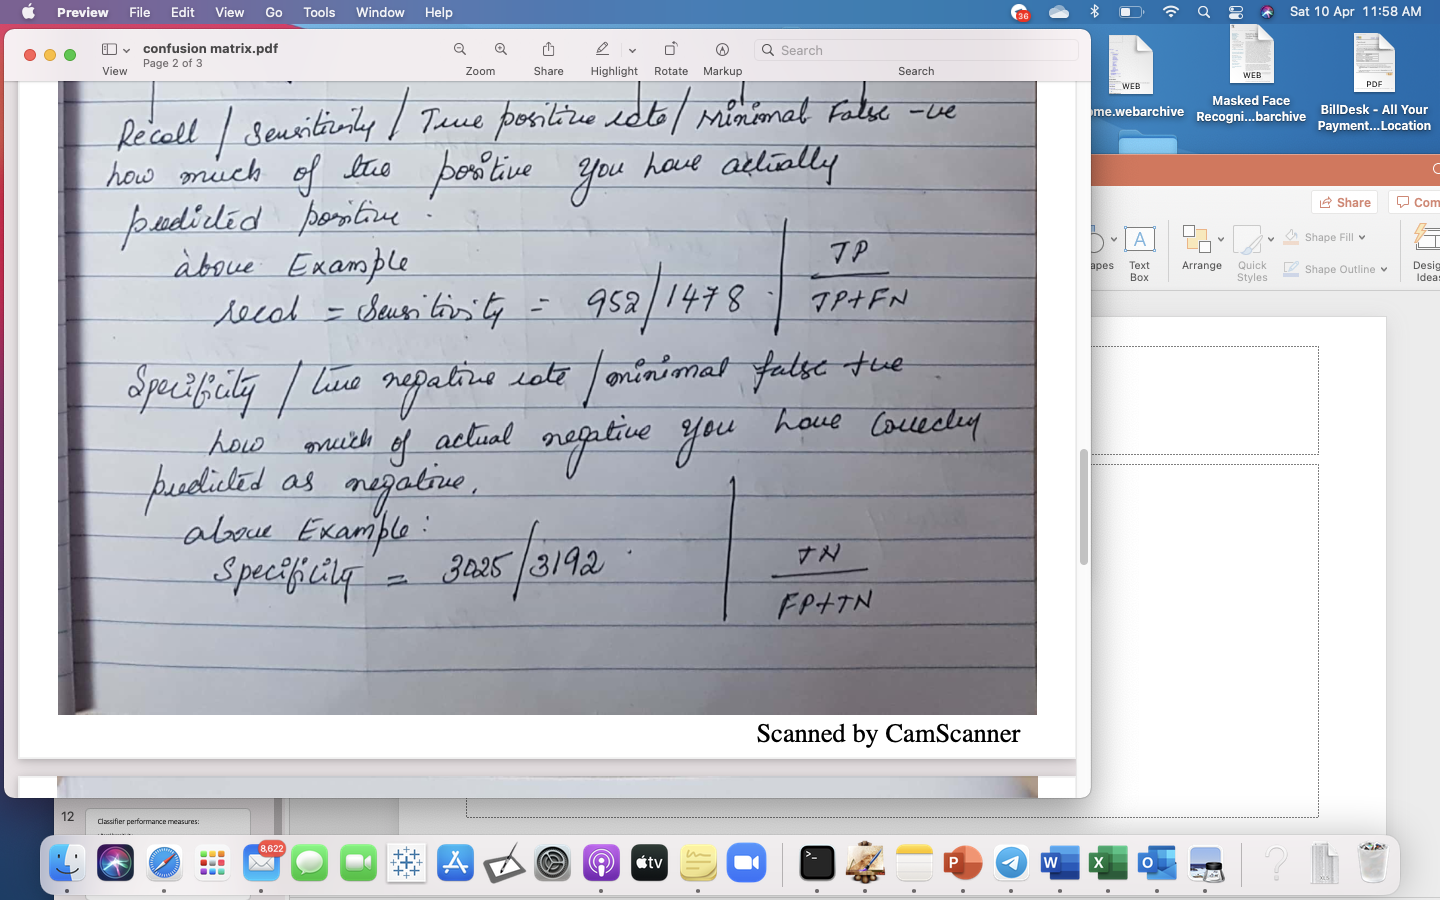 Preview File Edit View Go Tools Window Help
36
Sat 10 Apr 11:58 AM
confusion matrix.pdf
Page 2 of 3
View
Zoom
Share
Highlight
Rotate
Markup
Search
Search
Recall / Sensitivity / True positive rate / Minimal False -ve
how much of the positive you have actually
predicted positive.
above Example
recal = Sensitivity = 952/1478
TP
TP+FN
Specificity / true negative rate / minimal false +ve
how much of actual negative you have correctly
predicted as negative.
above Example:
Specificity = 3025/3192
TN
FP+TN
Scanned by CamScanner
WEB
me.webarchive
WEB
Masked Face
Recogni...barchive
PDF
BillDesk - All Your
Payment...Location
Share
Com
apes
A
Text
Box
Arrange
Quick
Styles
Shape Fill
Shape Outline
Desig
Ideas
12
Classifier performance measures:
8,622
tv
>_
P
W
X
O
?
XLS